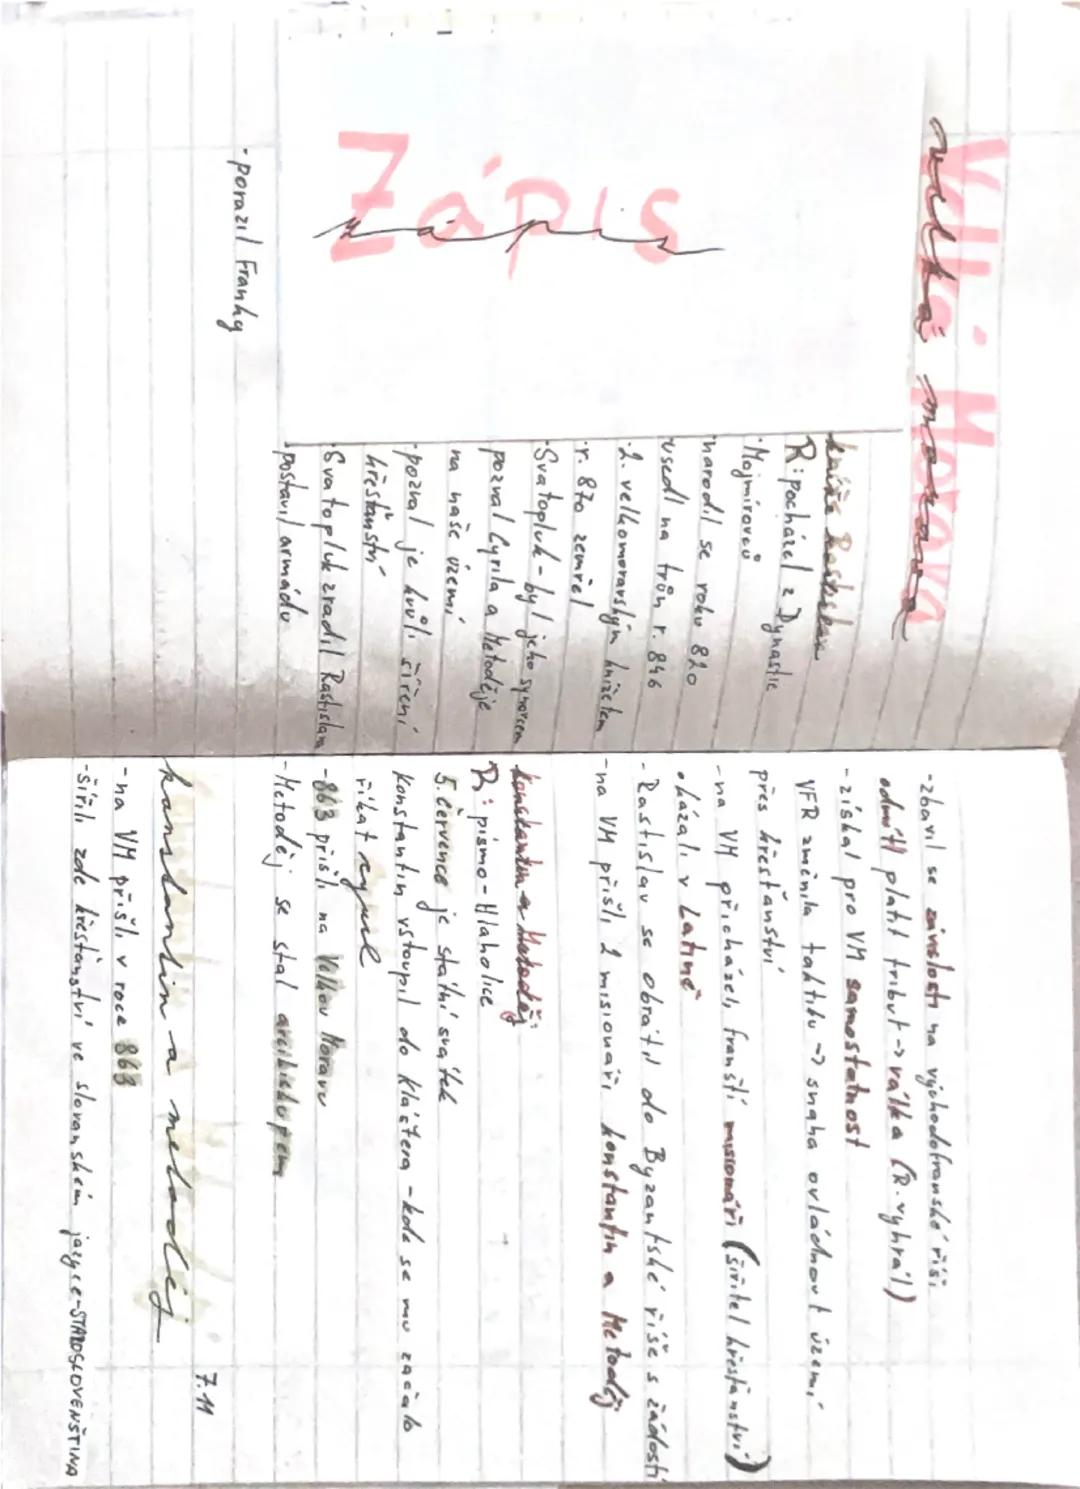 Velká Morava
velká morava
Zápis
zápis
kníže Rastislav
R: pocházel z Dynastie
·Mojmírovců
·narodil se roku 820
·usedl na trůn r. 846
·2. velkomoravským knížetem
·r. 870 zemřel
·Svatopluk - byl jeho synovcem
pozval Cyrila a Metoděje
na naše území
·pozval je kvůli šíření
křesťanství
·Svatopluk zradil Rastislava
·postavil armádu
·porazil Franky
-zbavil se závislosti na východofranské říši
odmítl platit tribut → válka (R. vyhrál)
-získal pro VM samostatnost
VFR změnila taktiku → snaha ovládnout území
přes křesťanství
-na VM přicházeli franští misionáři (šiřitel křesťanství)
·kázali v Latině
-Rastislav se obrátil do Byzantské říše s žádostí
-na VM přišli 2 misionáři konstantin a Metoděj
konstantin a Metoděj:
R: písmo-Hlaholice
5. července je státní svátek
Konstantin vstoupil do kláštera - kde se mu začalo
říkat cyril
-863 přišli na Velkou Moravu
-Metoděj se stal arcibiskupem
7.11
konstantin a metoděj
-na VM přišli v roce 863
-šířili zde křesťanství ve slovanském jazyce-STAROSLOVENŠTINA